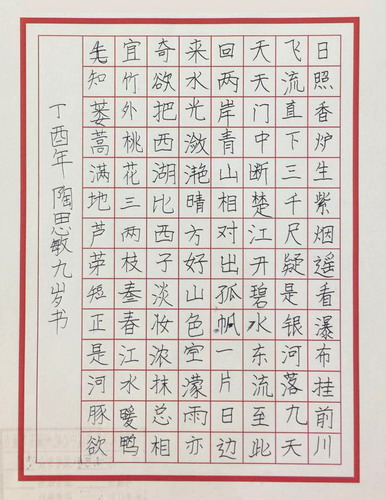 日照香炉生紫烟遥看瀑布挂前川
飞流直下三千尺疑是银河落九天
天天门中断楚江开碧水东流至此
回两岸青山相对出孤帆一片日边
来水光潋滟晴方好山色空濛雨亦
奇欲把西湖比西子淡妆浓抹总相
宜竹外桃花三两枝春江水暖鸭
知蒌蒿满地芦茅短正是河豚欲
丁酉年 陶思敏九岁书